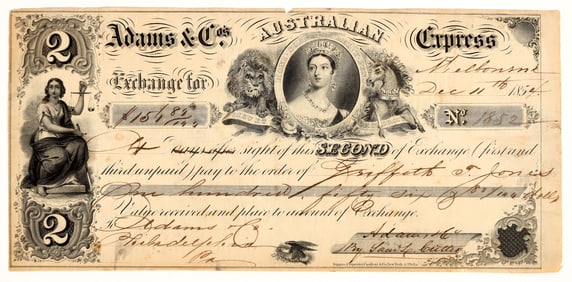 2
Adams & Co's AUSTRALIAN Express
Melbourne
Exchange for
Dec 11th 1854
$156 82/100
No. 1852
At sight of this SECOND of Exchange (first and
third unpaid) pay to the order of Griffith T. Jones
One hundred fifty six 82/100 dollars
Value received and place to account of Exchange.
To Adams & Co.
Philadelphia
Pa
Adams & Co
By Saml L. Cutter
2